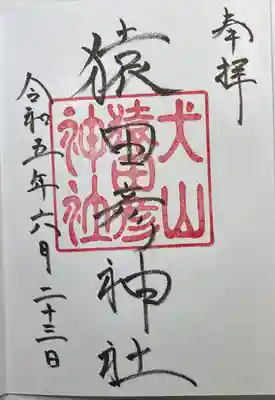 奉拝
犬山
猿田彦
神社
猿田彦神社
令和五年六月二十三日